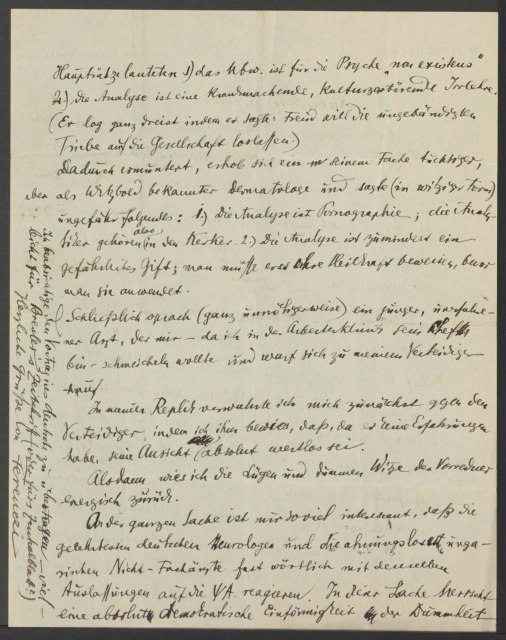 Hauptsätze lauteten 1) das Ubw. ist für die Psyche „non existens"
2.) Die Analyse ist eine Krankmachende, Kulturzerstörende Irrlehre.
(Er log ganz dreist indem er sagte: Freud will die ungebändigten
Triebe auf die Gesellschaft loslassen.)
Dadurch ermuntert, erhob sich ein in seinem Fache tüchtiger,
aber als Witzbold bekannter Dermatologe und sagte (in witziger Form)
ungefähr folgendes: 1.) Die Analyse ist Pornographie; die Analy-
tiker gehören also in den Kerker. 2.) Die Analyse ist zumindest ein
gefährliches Gift; man müsse erst ihre Heilkraft beweisen, bevor
man sie anwendet.
Schliesslich sprach (ganz unnötigerweise) ein junger, unerfahre-
ner Arzt, der mir – da ich in der Arbeiterklinik sein Chef
bin – schmeicheln wollte und warf sich zu meinem Verteidiger
auf.
In meiner Replik verwahrte ich mich zunächst gegen den
Verteidiger, indem ich ihm bewies, daß, da er keine Erfahrungen
habe, seine Ansicht absolut wertlos sei.
Alsdann wies ich die Lügen und dummen Witze der Vorredner
energisch zurück.
An der ganzen Sache ist mir soviel interessant, daß die
gelehrtesten deutschen Neurologen und die ahnungslosesten unga-
rischen Nicht-Fachärzte fast wörtlich mit denselben
Auslassungen auf die ΨA. reagieren. In dieser Sache herrscht
eine absolut demokratische Einförmigkeit der Dummheit
Ich beabsichtige den Vortrag ins Deutsche zu übertragen – viel-
leicht für Bresler's Zeitschrift (oder fürs Zentralblatt?)
Herzliche Grüße von Ferenczi